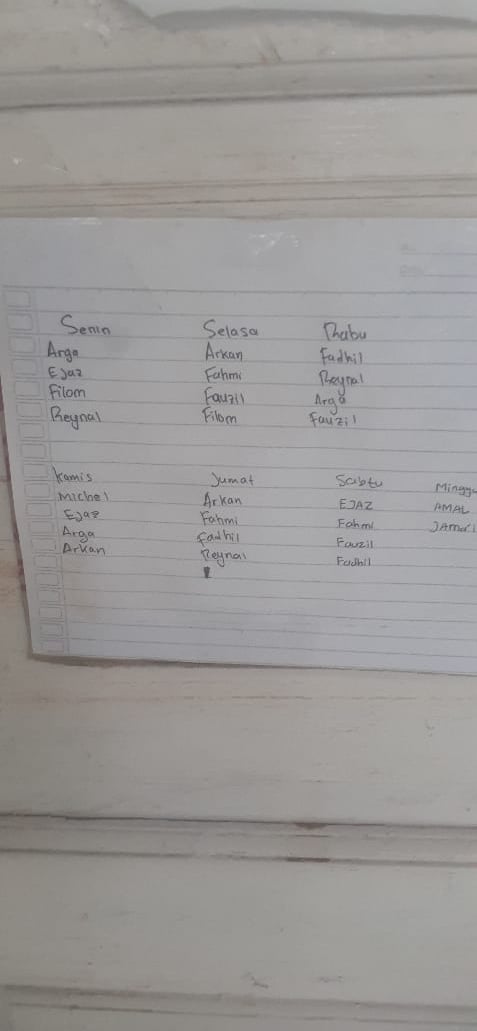 Senin Selasa Rhabu
Arga Arkan Fadhil
Ejaz Fahmi Reynal
Filom Fauzil Arga
Reynal Filom Fauzil
Kamis Jumat Sabtu Minggu
Michel Arkan EJAZ AMAL
Ejaz Fahmi Fahmi
Arga Fadhil Fauzil
Arkan Reynal Fadhil